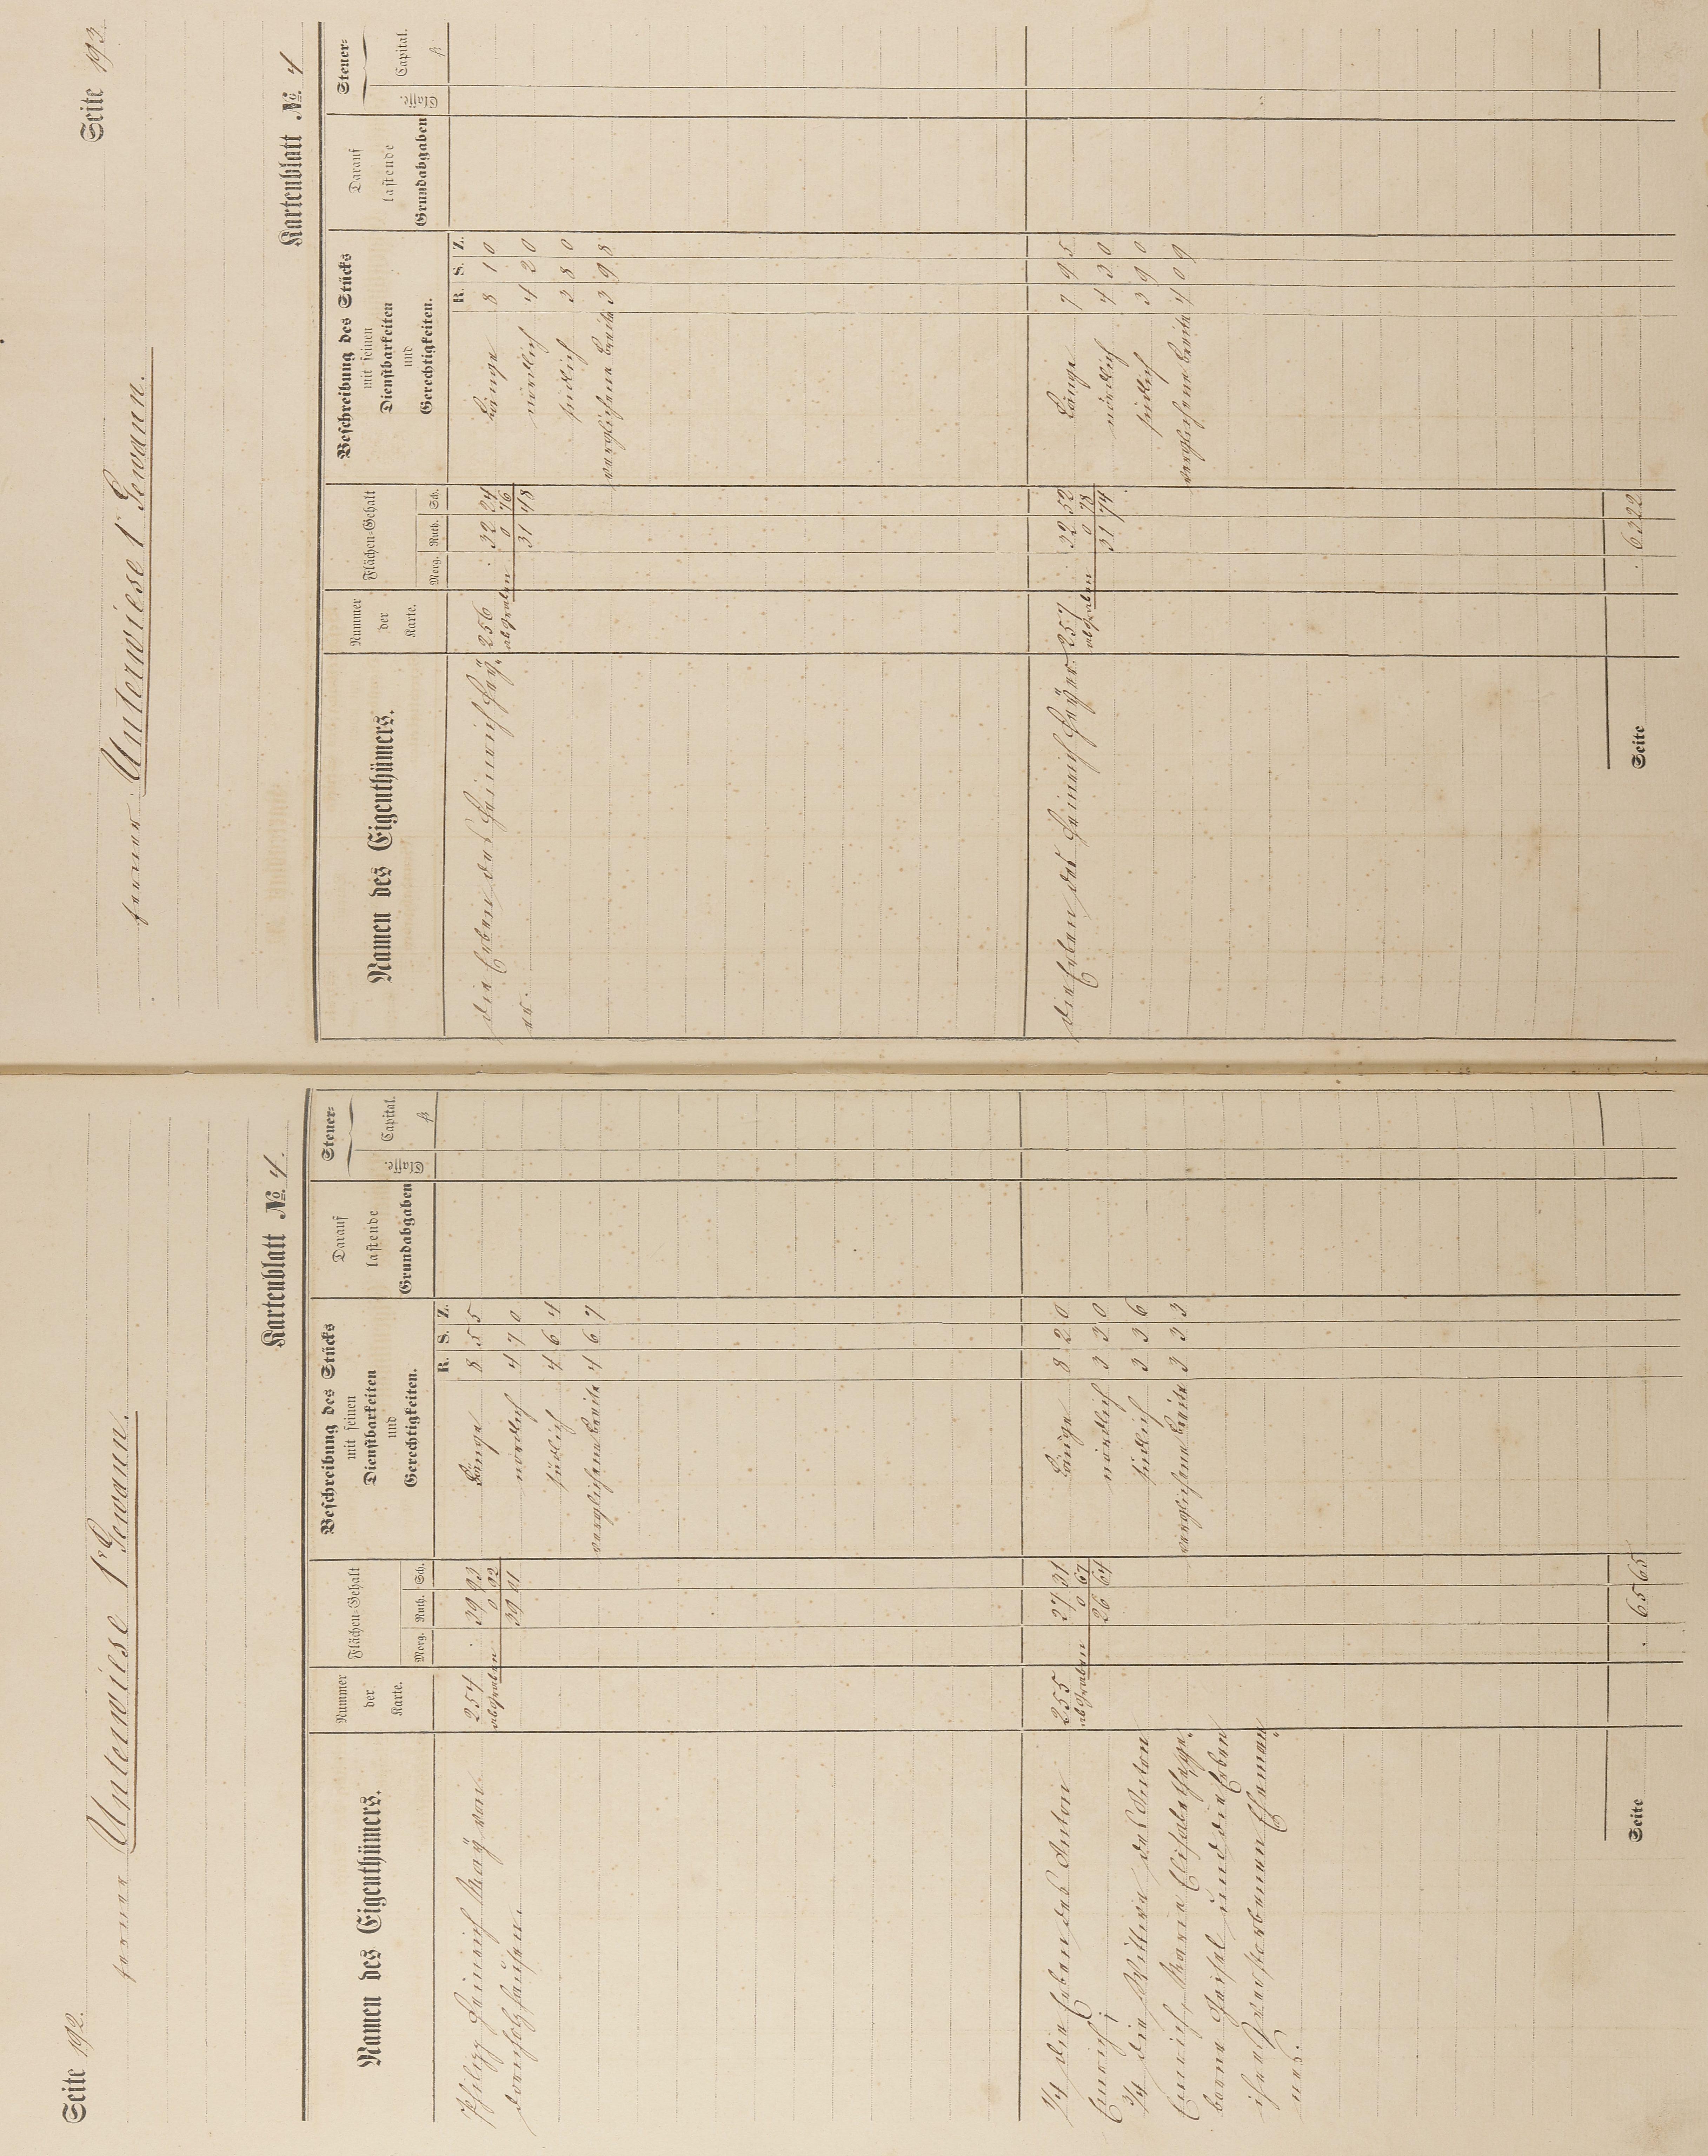 Seite 192.
ferner Unterwiese 1r Gewann.
Kartenblatt No. 4.
Namen des Eigenthümers.
Nummer der Karte.
Flächen-Gehalt
Morg. Ruth. Sch.
Beschreibung des Stücks
mit seinen
Dienstbarkeiten
und
Gerechtigkeiten.
R. S. Z.
Darauf
lastende
Grundabgaben
Steuer-
Classe. Capital.
fl.
Philipp Heinrich Maÿ von 254 . 39 93 Länge 8 5 5
Dornholzhausen. abGraben 0 92
39 01 nördlich 4 7 0
südlich 4 6 4
verglichene Breite 4 6 7
1/4 die Erben des Anton 255 27 31 Länge 8 2 0
Emrich; abGraben 0 67
26 64 nördlich 3 3 0
3/4 die Wittwe des Anton südlich 3 3 6
Emrich, Maria Elisabetha ge- verglichene Breite 3 3 3
borne Heisel und die Erben
ihres verstorbenen Eheman-
nes.
Seite . 65 65
Seite 193.
ferner Unterwiese 1r Gewann.
Kartenblatt No. 4
Namen des Eigenthümers.
Nummer
der
Karte.
Flächen-Gehalt
Morg. Ruth. Sch.
Beschreibung des Stücks
mit seinen
Dienstbarkeiten
und
Gerechtigkeiten.
R. S. Z.
Darauf
lastende
Grundabgaben
Steuer-
Classe. Capital.
fl.
die Erben des Heinrich Heÿ- 256 . 32 24 Länge 8 1 0
er. abGraben 0 76
31 48 nördlich 4 2 0
südlich 3 8 0
verglichene Breite 3 9 8
die Erben des Heinrich Heÿer. 257 32 52 Länge 7 9 5
abGraben 0 78
31 74 nördlich 4 3 0
südlich 3 9 0
verglichene Breite 4 0 9
Seite . 63 22